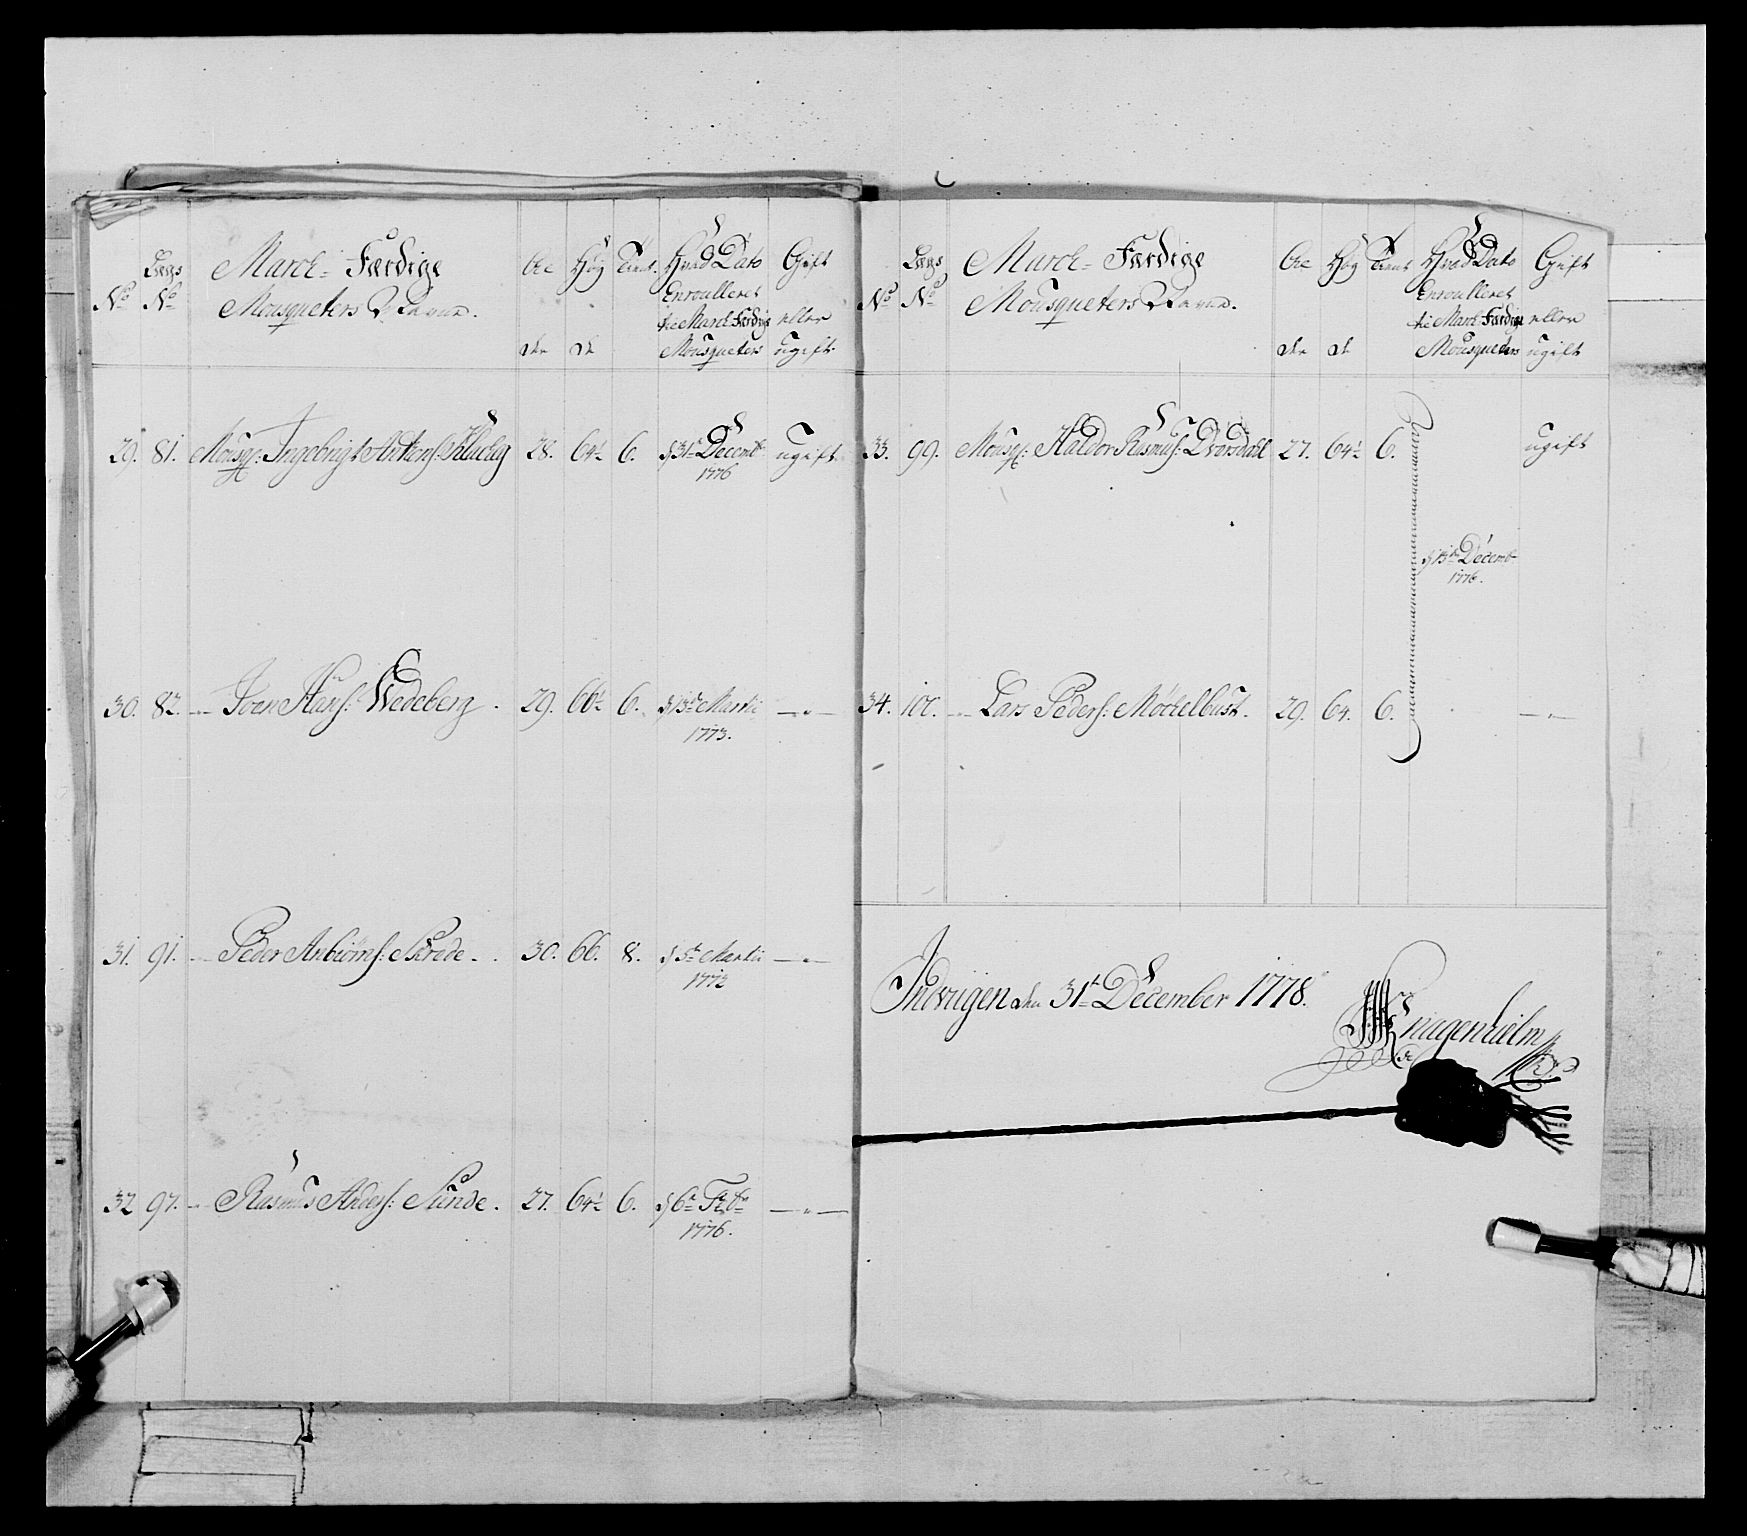 No
Lægs No
March- Færdige
Mousqueters Navne.
Al der
Høy de
Tient.
Hvad Dato
Enroulleret
til March Færdige
Mousqueters
Gift
eller
ugift
29. 81. Mousq: Ingebrigt 28. 64½ 6. d 31te Decembr ugift
1776
30. 82. Hans: Wedeberg. 29. 66½ 6. d 13de Martii
1773.
31. 91. Peder Anbiørns: Skrede. 30. 66. 8. d 5te Martii
1772
32 97. Rasmus Anders: Sunde. 27. 64½ 6. d 6te
1776.
No
Lægs No
March- Færdige
Mousqueters Navne.
Al der
Høy de
Tient
Hvad Dato
Enroulleret
til March Færdige
Mousqueters
Gift
eller
ugift
33. 99. Mousq: Haldor Rasmus: 27. 64½ 6. ugift
d 13de Decembr
1776.
34. Lars Peders: Møckelbust. 29. 64. 6.
Indvigen den 31te December 1778.
Knagenhielm